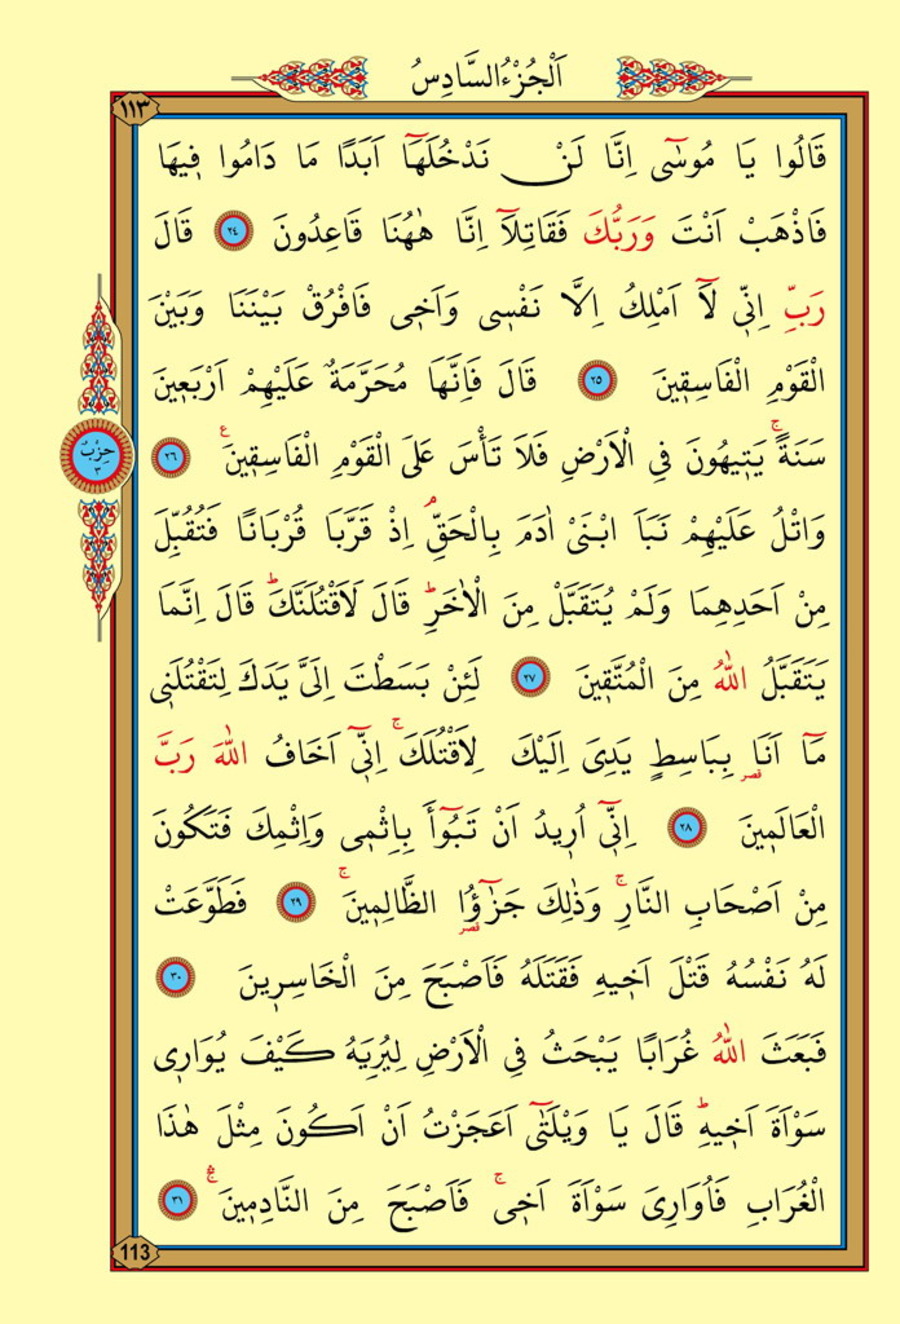 اَلْجُزْءُ السَّادِسُ
١١٣
قَالُوا يَا مُوسٰٓى اِنَّا لَنْ نَدْخُلَهَٓا اَبَدًا مَا دَامُوا فٖيهَا
فَاذْهَبْ اَنْتَ وَرَبُّكَ فَقَاتِلَٓا اِنَّا هٰهُنَا قَاعِدُونَ ٢٤ قَالَ
رَبِّ اِنّٖى لَٓا اَمْلِكُ اِلَّا نَفْسٖى وَاَخٖى فَافْرُقْ بَيْنَنَا وَبَيْنَ
الْقَوْمِ الْفَاسِقٖينَ ٢٥ قَالَ فَاِنَّهَا مُحَرَّمَةٌ عَلَيْهِمْ اَرْبَعٖينَ
سَنَةًۚ يَتٖيهُونَ فِى الْاَرْضِ فَلَا تَأْسَ عَلَى الْقَوْمِ الْفَاسِقٖينَ ع ٢٦
حِزْبٌ
٣
وَاتْلُ عَلَيْهِمْ نَبَاَ ابْنَىْ اٰدَمَ بِالْحَقِّۢ اِذْ قَرَّبَا قُرْبَانًا فَتُقُبِّلَ
مِنْ اَحَدِهِمَا وَلَمْ يُتَقَبَّلْ مِنَ الْاٰخَرِؕ قَالَ لَاَقْتُلَنَّكَؕ قَالَ اِنَّمَا
يَتَقَبَّلُ اللّٰهُ مِنَ الْمُتَّقٖينَ ٢٧ لَئِنْ بَسَطْتَ اِلَىَّ يَدَكَ لِتَقْتُلَنٖى
مَٓا اَنَا۬ قصر بِبَاسِطٍ يَدِىَ اِلَيْكَ لِاَقْتُلَكَۚ اِنّٖٓى اَخَافُ اللّٰهَ رَبَّ
الْعَالَمٖينَ ٢٨ اِنّٖٓى اُرٖيدُ اَنْ تَبُٓوأَ بِاِثْمٖى وَاِثْمِكَ فَتَكُونَ
مِنْ اَصْحَابِ النَّارِۚ وَذٰلِكَ جَزٰٓؤُا قصر الظَّالِمٖينَۚ ٢٩ فَطَوَّعَتْ
لَهُ نَفْسُهُ قَتْلَ اَخٖيهِ فَقَتَلَهُ فَاَصْبَحَ مِنَ الْخَاسِرٖينَ ٣٠
فَبَعَثَ اللّٰهُ غُرَابًا يَبْحَثُ فِى الْاَرْضِ لِيُرِيَهُ كَيْفَ يُوَارٖى
سَوْاَةَ اَخٖيهِؕ قَالَ يَا وَيْلَتٰٓى اَعَجَزْتُ اَنْ اَكُونَ مِثْلَ هٰذَا
الْغُرَابِ فَاُوَارِىَ سَوْاَةَ اَخٖىۚ فَاَصْبَحَ مِنَ النَّادِمٖينَۛۚ ٣١
113